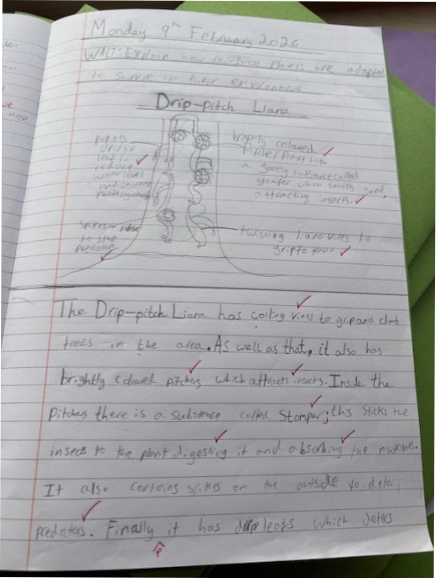 Monday 9th February 2026
WALT: Explain how rainforest plants are adapted
to survive in their environment
Drip-pitch Liana
brightly coloured
a gooey substance called
stomper which smells good,
attracting insects.
leaf to
reduce
water level
Spikes on
to stop
predators
Twisting liana vines to
grip to trees
The Drip-pitch Liana has coiling vines to grip and climb
trees in the area. As well as that, it also has
brightly coloured pitches which attracts insects. Inside the
pitches there is a substance called Stomper; this sticks the
insects to the plant digesting it and absorbing the nutrients.
It also contains spikes on the outside to deter
predators. Finally it has drip leafs which deters